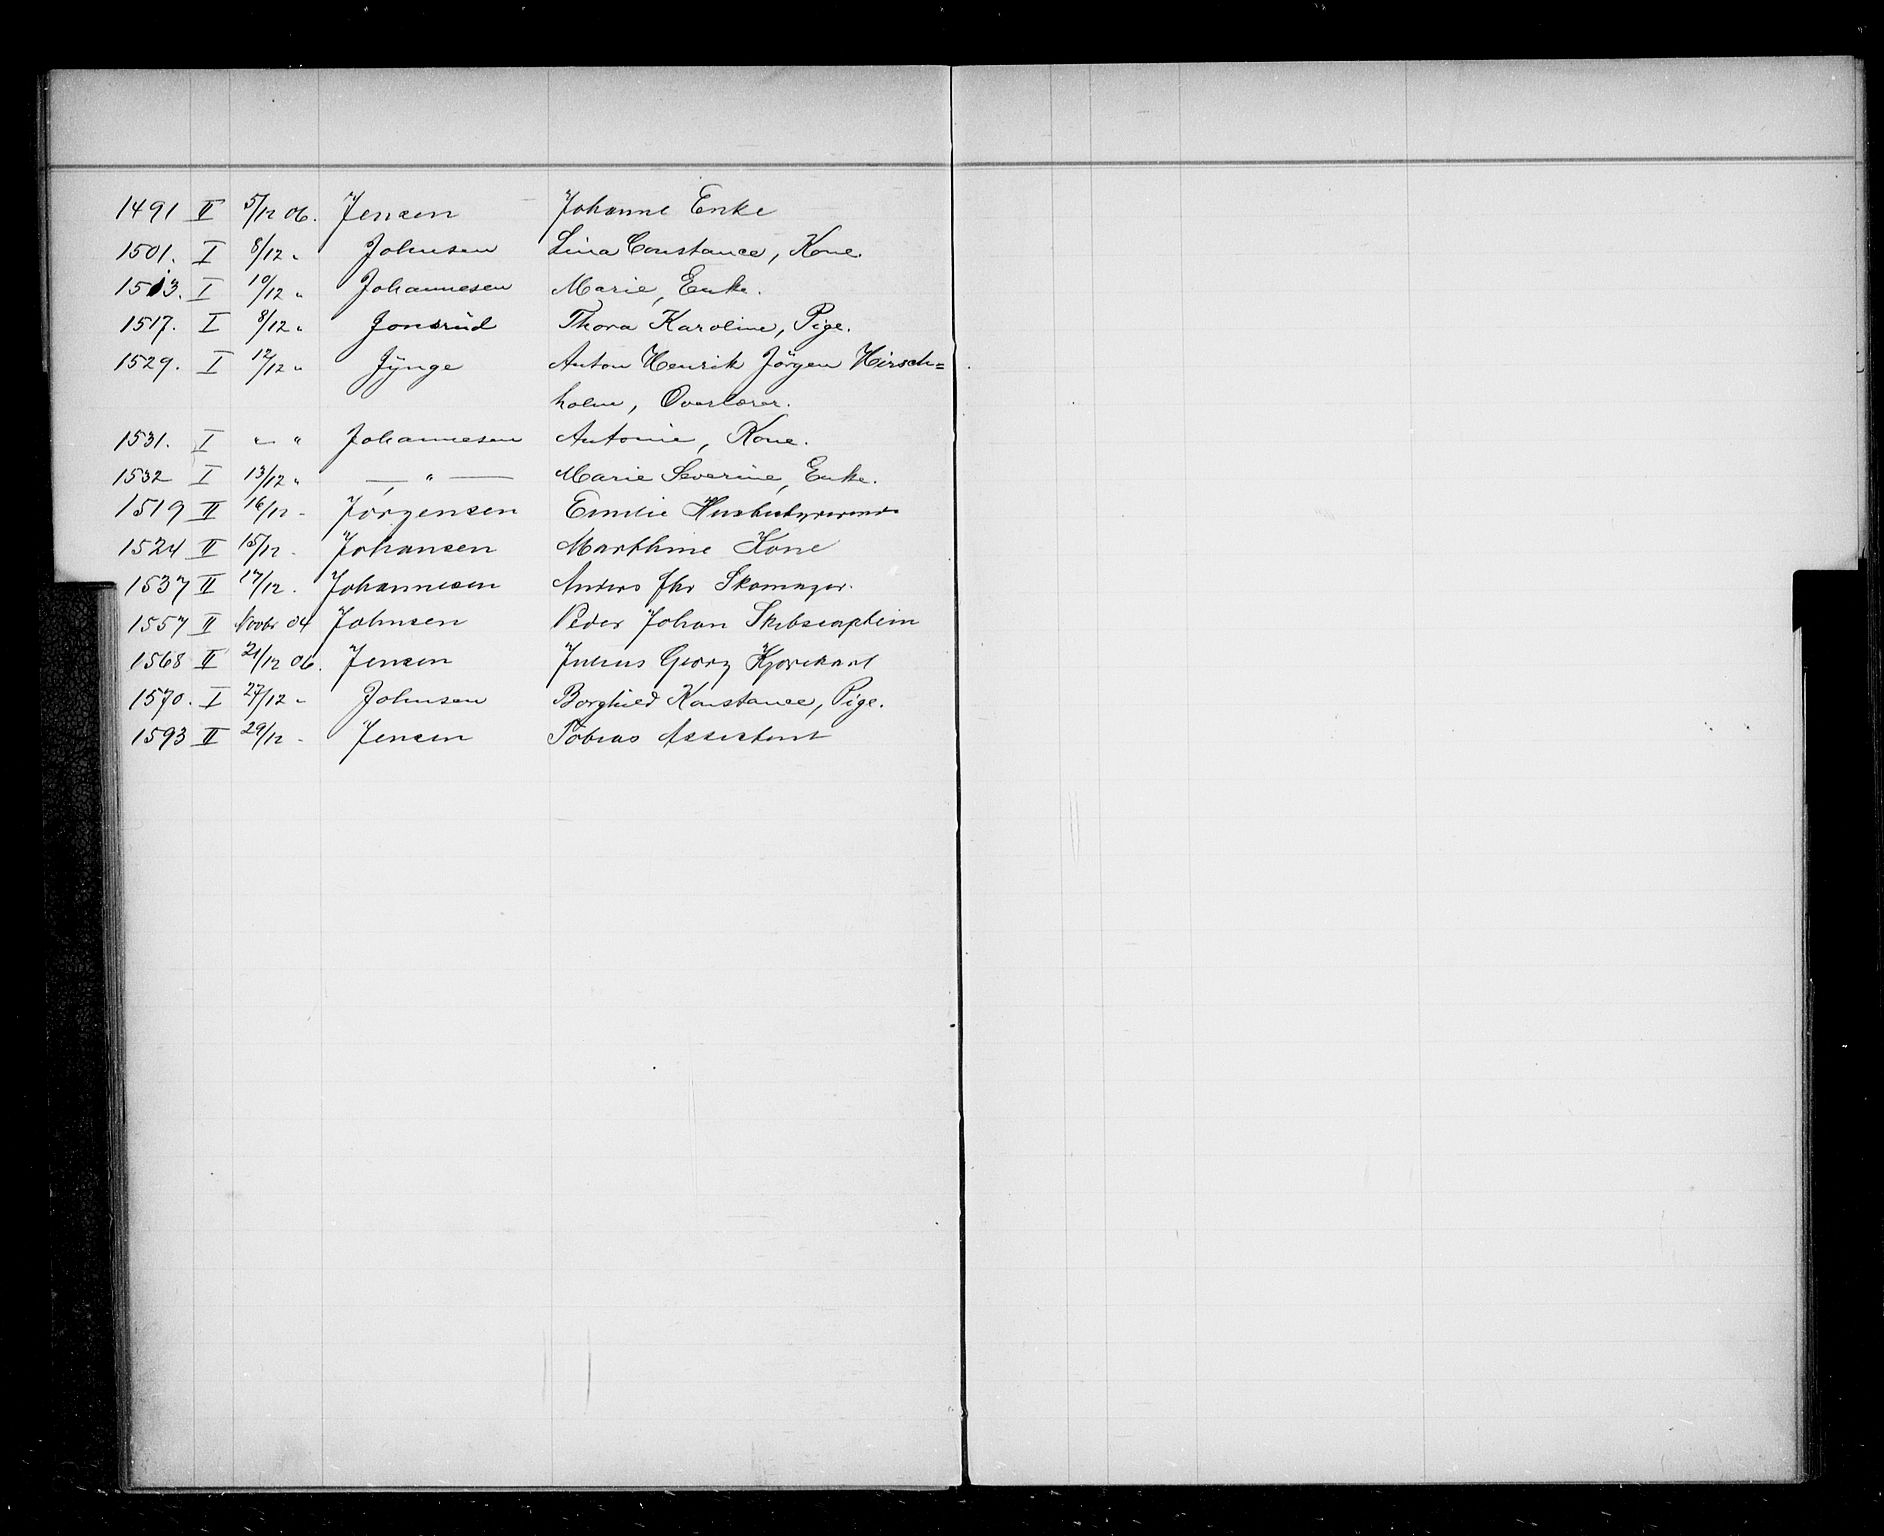 1491 II 5/12 06. Jensen Johanne Enke
1501. I 8/12 " Johnsen Lina Constance, Kone.
1513. I 10/12 " Johannesen Marie, Enke.
1517. I 8/12 " Jonsrud Thora Karoline, Pige.
1529. I 12/12 " Jÿnge Anton Henrik Jörgen Hirsch=
holm, Overlærer.
1531. I " " Johannesen Antonie, Kone.
1532 I 13/12 " — " — Marie Severine, Enke.
1519 II 16/12 - Jørgensen Emilie Husbestyrerinde
1524 II 15/12 - Johansen Marthine Kone
1537 II 17/12 . Johannesen Anders fhv Skomager.
1557 II Novbr 04 Johnsen Peder Johan Skibscaptein
1568 II 21/12 06. Jensen Julius Georg Kjørekarl
1570. I 27/12 " Johnsen Borghild Konstance, Pige.
1593 II 29/12 - Jensen Tobias Assistent